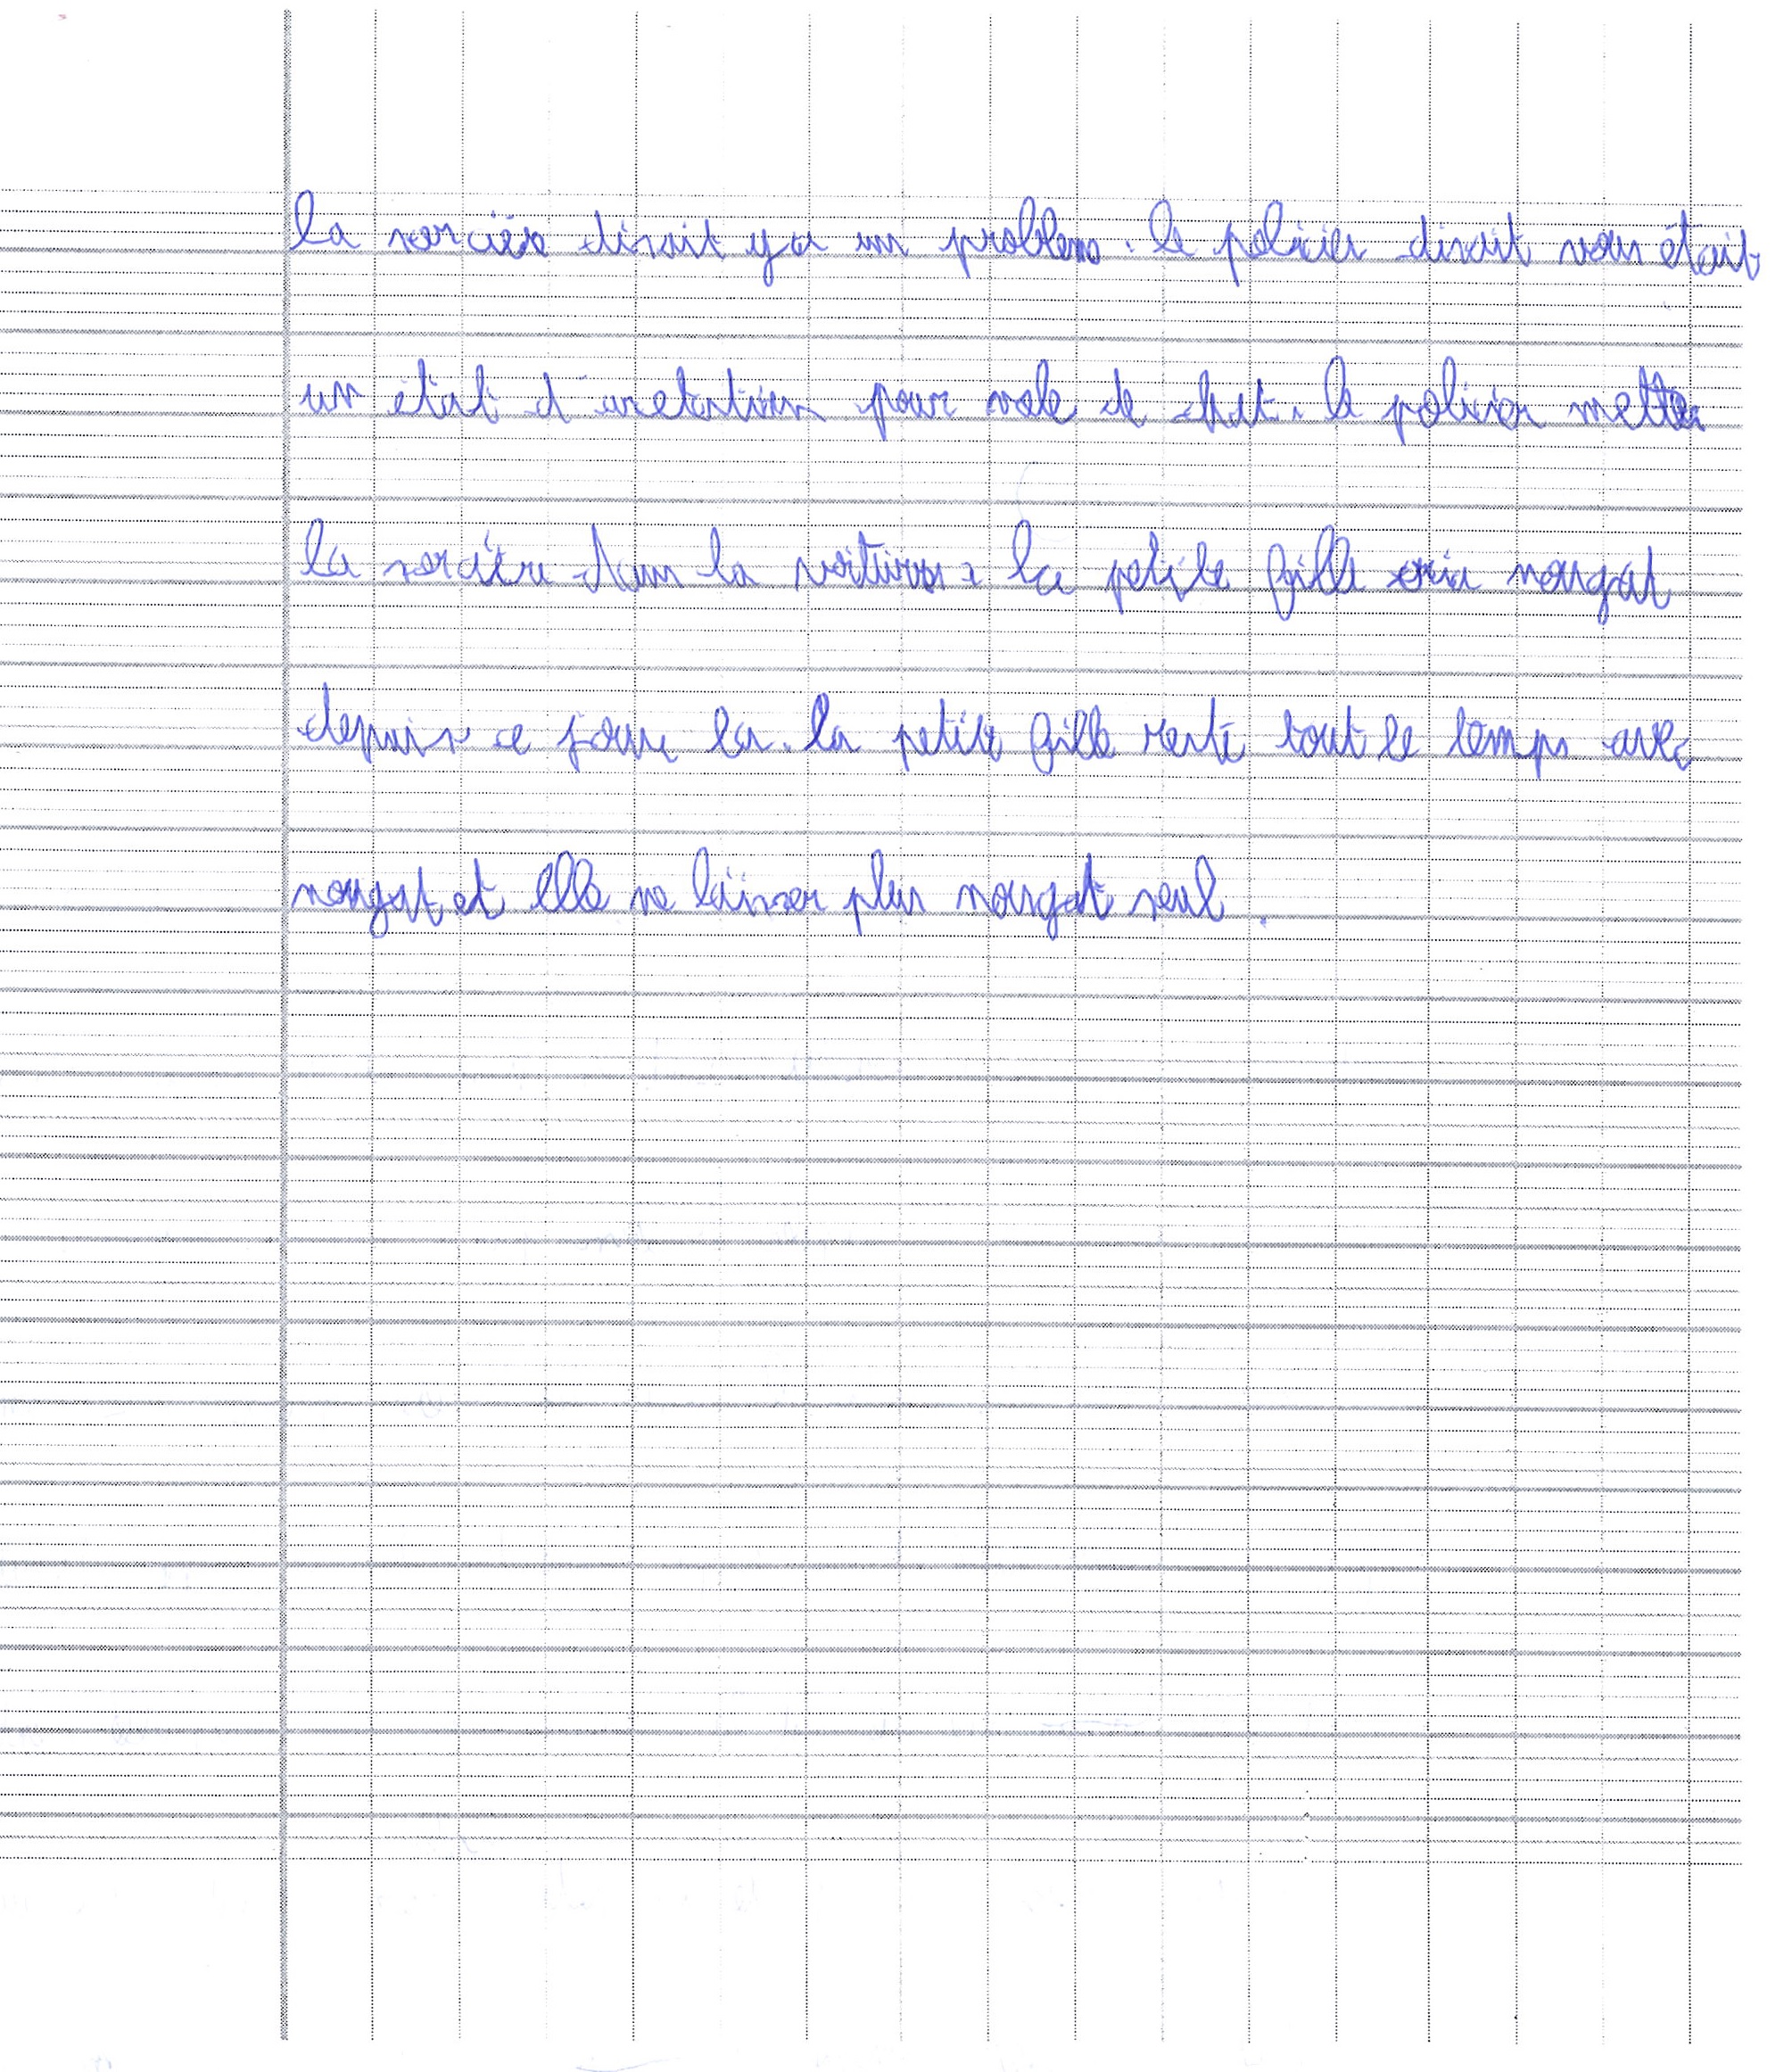 la sorcière disait y a un problem. le policier disait vous était
un état d'aretation pour vole de chat. le policier metter
la sorcière dans la voitures. la petite fille cria nougat
depuis ce jour la. la petite fille resté tout le temps avec
nougat et elle ne laisser plus nougat seul.